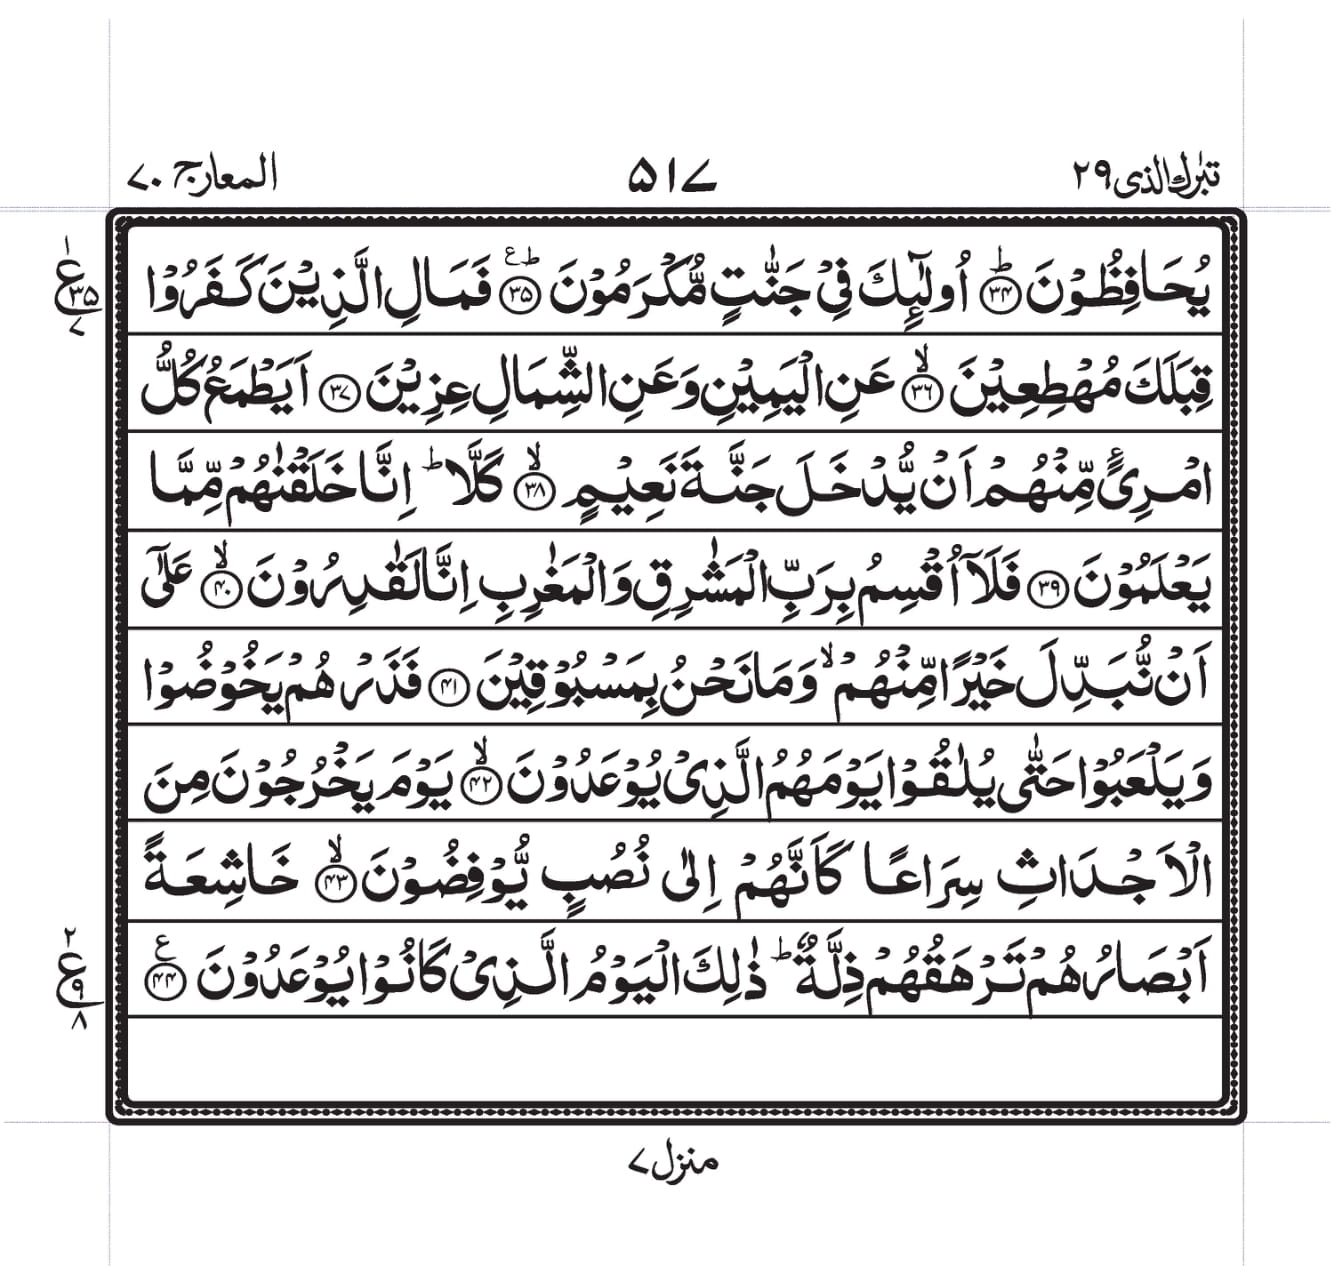 تبٰرك الذى ٢٩ ۵۱۷ المعارج ٧٠
يُحَافِظُوْنَ ؕ‏﴿۳۴﴾ اُولٰٓئِكَ فِیْ جَنّٰتٍ مُّكْرَمُوْنَ ؕ ع ﴿۳۵﴾ فَمَالِ الَّذِيْنَ كَفَرُوْا
۱ ع ۳۵ ۷
قِبَلَكَ مُهْطِعِيْنَ ۙ﴿۳۶﴾ عَنِ الْيَمِيْنِ وَعَنِ الشِّمَالِ عِزِيْنَ ﴿۳۷﴾ اَيَطْمَعُ كُلُّ
امْرِیٴٍ مِّنْهُمْ اَنْ يُّدْخَلَ جَنَّةَ نَعِيْمٍ ۙ﴿۳۸﴾ كَلَّا ؕ اِنَّا خَلَقْنٰهُمْ مِّمَّا
يَعْلَمُوْنَ ﴿۳۹﴾ فَلَاۤ اُقْسِمُ بِرَبِّ الْمَشٰرِقِ وَالْمَغٰرِبِ اِنَّا لَقٰدِرُوْنَ ۙ﴿۴۰﴾ عَلٰٓى
اَنْ نُّبَدِّلَ خَيْرًا مِّنْهُمْ ۙ وَمَا نَحْنُ بِمَسْبُوْقِيْنَ ﴿۴۱﴾ فَذَرْهُمْ يَخُوْضُوْا
وَيَلْعَبُوْا حَتّٰى يُلٰقُوْا يَوْمَهُمُ الَّذِیْ يُوْعَدُوْنَ ۙ﴿۴۲﴾ يَوْمَ يَخْرُجُوْنَ مِنَ
الْاَجْدَاثِ سِرَاعًا كَاَنَّهُمْ اِلٰى نُصُبٍ يُّوْفِضُوْنَ ۙ﴿۴۳﴾ خَاشِعَةً
اَبْصَارُهُمْ تَرْهَقُهُمْ ذِلَّةٌ ؕ ذٰلِكَ الْيَوْمُ الَّذِیْ كَانُوْا يُوْعَدُوْنَ ع ﴿۴۴﴾
۲ ع ۹ ۸
منزل ۷